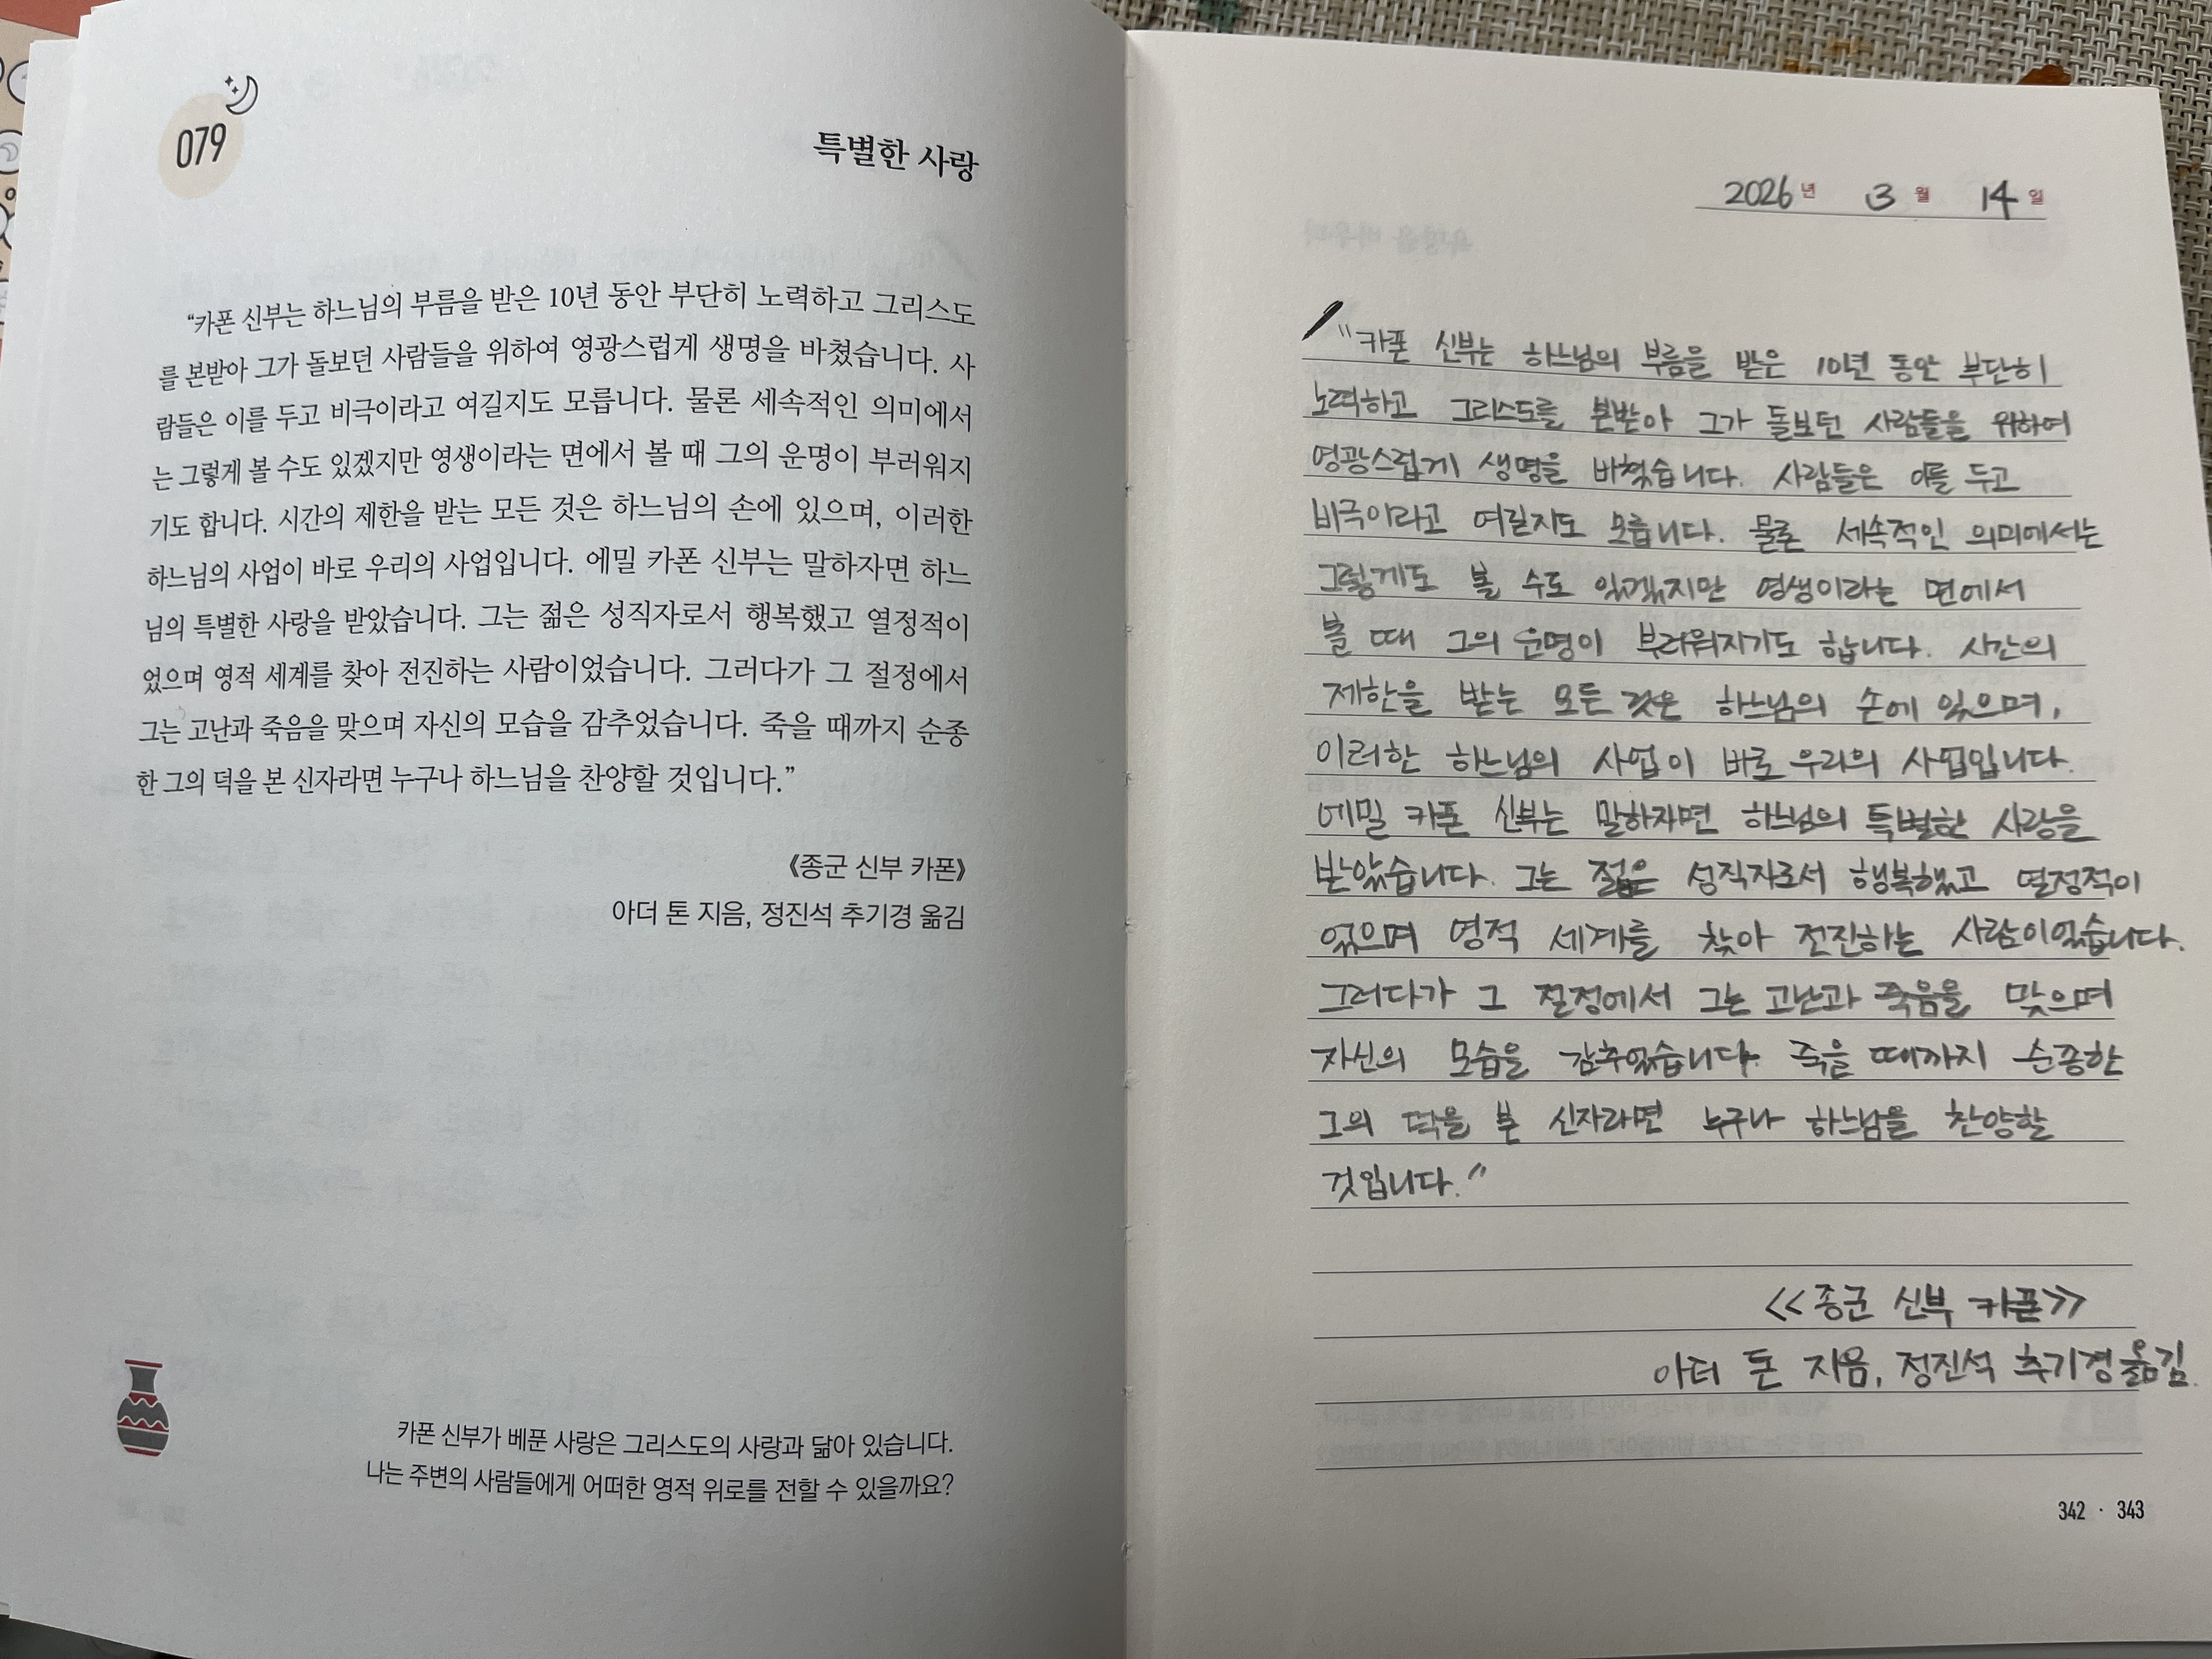 079
특별한 사랑
“카폰 신부는 하느님의 부름을 받은 10년 동안 부단히 노력하고 그리스도
를 본받아 그가 돌보던 사람들을 위하여 영광스럽게 생명을 바쳤습니다. 사
람들은 이를 두고 비극이라고 여길지도 모릅니다. 물론 세속적인 의미에서
는 그렇게 볼 수도 있겠지만 영생이라는 면에서 볼 때 그의 운명이 부러워지
기도 합니다. 시간의 제한을 받는 모든 것은 하느님의 손에 있으며, 이러한
하느님의 사업이 바로 우리의 사업입니다. 에밀 카폰 신부는 말하자면 하느
님의 특별한 사랑을 받았습니다. 그는 젊은 성직자로서 행복했고 열정적이
었으며 영적 세계를 찾아 전진하는 사람이었습니다. 그러다가 그 절정에서
그는 고난과 죽음을 맞으며 자신의 모습을 감추었습니다. 죽을 때까지 순종
한 그의 덕을 본 신자라면 누구나 하느님을 찬양할 것입니다.”
《종군 신부 카폰》
아더 톤 지음, 정진석 추기경 옮김
카폰 신부가 베푼 사랑은 그리스도의 사랑과 닮아 있습니다.
나는 주변의 사람들에게 어떠한 영적 위로를 전할 수 있을까요?
2026년 3월 14일
"카폰 신부는 하느님의 부름을 받은 10년 동안 부단히
노력하고 그리스도를 본받아 그가 돌보던 사람들을 위하여
영광스럽게 생명을 바쳤습니다. 사람들은 이를 두고
비극이라고 여길지도 모릅니다. 물론 세속적인 의미에서는
그렇게도 볼 수도 있겠지만 영생이라는 면에서
볼 때 그의 운명이 부러워지기도 합니다. 시간의
제한을 받는 모든 것은 하느님의 손에 있으며,
이러한 하느님의 사업이 바로 우리의 사업입니다.
에밀 카폰 신부는 말하자면 하느님의 특별한 사랑을
받았습니다. 그는 젊은 성직자로서 행복했고 열정적이
었으며 영적 세계를 찾아 전진하는 사람이었습니다.
그러다가 그 절정에서 그는 고난과 죽음을 맞으며
자신의 모습을 감추었습니다. 죽을 때까지 순종한
그의 덕을 본 신자라면 누구나 하느님을 찬양할
것입니다."
<<종군 신부 카폰>>
아더 톤 지음, 정진석 추기경 옮김.
342 · 343